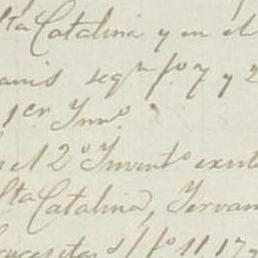 lta Catalina y en el
anis segn fo 7 y 2
1er Inno 2
el 2o Invento exist
lta Catalina, Gervan
fo 11, 17